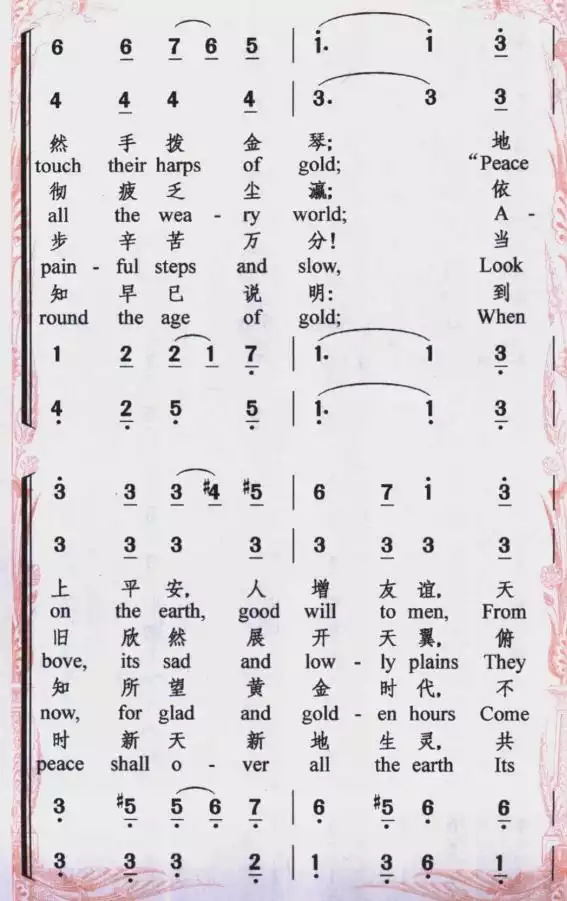 6 6 7 6 5 | 1. 1 3
4 4 4 4 | 3. 3 3
然 手 拨 金 琴; 地
touch their harps of gold; “Peace
彻 疲 乏 尘 瀛; 依
all the wea - ry world; A -
步 辛 苦 万 分! 当
pain - ful steps and slow, Look
知 早 已 说 明: 到
round the age of gold; When
1 2 2 1 7 | 1. 1 3
4 2 5 5 | 1. 1 3
3 3 3 #4 #5 | 6 7 1 3
3 3 3 3 | 3 3 3 3
上 平 安, 人 增 友 谊, 天
on the earth, good will to men, From
旧 欣 然 展 开 天 翼, 俯
bove, its sad and low - ly plains They
知 所 望 黄 金 时 代, 不
now, for glad and gold - en hours Come
时 新 天 新 地 生 灵, 共
peace shall o - ver all the earth Its
3 #5 5 6 7 | 6 #5 6 6
3 3 3 2 | 1 3 6 1